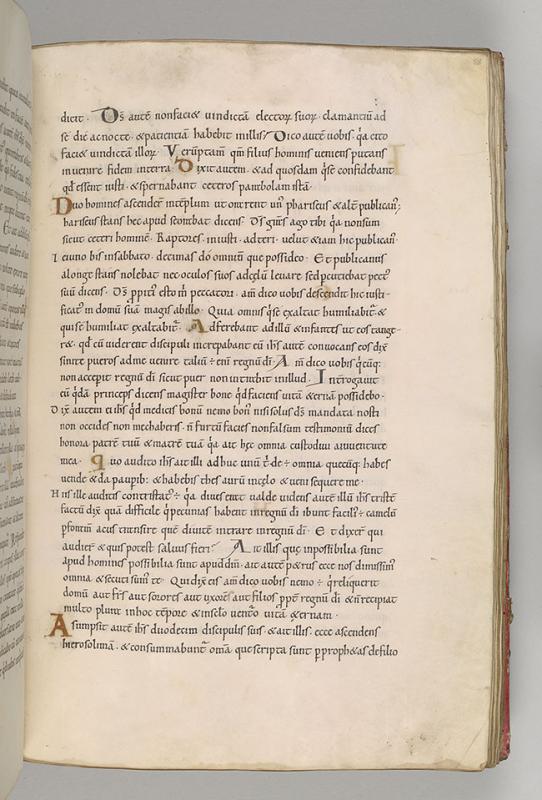 dicit . Ds̄ autē non faciet vindictā electorꝝ suorꝝ clamantiū ad
se die ac nocte . & patientiā habebit in illis? Dico autē vobis . q̇a cito
faciet vindictā illorꝝ . Verūptam̄ . qm̄ filius hominis veniens putans
inveniet fidem in terra . Dixit autem . & ad quosdam q̇ se confidebant
qd̄ essent iusti . & spernabant ceteros parabolam istā .
Duo homines ascender̄ in tēplum ut orarent . un᷒ phariseus & alt̄ publican᷒ ;
hariseus stans hec apud se orabat dicens . Ds̄ gr̄as ago tibi q̇a non sum
sicut ceteri hominē . Raptores . iniusti . adteri . velut & iam hic publican᷒ .
Ieiuno bis in sabbato . decimas do omniū que possideo . Et publicanus
a longe stans nolebat nec oculos suos ad cęlū levare sed p̄cutiebat pect᷒
suū dicens . Ds̄ p̄piti᷒ esto m̄ peccatori . am̄ dico vobis descendit hic iusti-
ficat᷒ in domū suā magis ab illo . Quia omnis q̇ se exaltat humiliabit᷒ . &
qui se humiliat exaltabit᷒ . Adferebant ad illū & infantes ut eos tange-
ret . qd̄ cū viderent discipuli increpabant eū ihs̄ autē convocans eos dix̄
sinite pueros ad me venire taliū ÷ enī regnū dī . Am̄ dico vobis q̇cūq:
non accepit regnū dī sicut puer non intrabit in illud . Interogavit
eū q̇dā princeps dicens magister bone qd̄ faciens vitā &ernā possidebo .
Dix̄ autem ei ihs̄ qd̄ me dicis bonū nemo bon᷒ nisi solus ds̄ mandata nosti
non occides non mechaberis . n̄ furtū facies non falsum testimoniū dices
honora patrē tuū & matrē tuā q̇a ait hęc omnia custodivi a iuventute
mea . Quo audito ihs̄ ait illi adhuc unū t̄ de÷ omnia quecūq: habes
vende & da paupib: & habebis thesaurū in cęlo & veni sequere me .
His ille auditis contristat᷒ ÷ q̇a dives erat valde videns autē illū ihs̄ tristē
factū dix̄ quā difficile q̇ pecunias habent in regnū dī ibunt facili᷒ ÷ camelū
p̄ foram̄ acus transire quē divitē intrare in regnū dī . Et dixer̄ qui
audier̄ & quis potest salvus fieri? Ait illis que impossibilia sunt
apud homines possibilia sunt apud dm̄ . ait autē p&rus ecce nos dimisim᷒
omnia & secuti sum᷒ te . Qui dix̄ eis am̄ dico vobis nemo ÷ q̇ reliquerit
domū aut fr̄s aut sorores aut uxorē aut filios p̄pt̄ regnū dī & n̄ recipiat
multo plura in hoc tēpore & in sc̄lo ventō vitā &ernam .
Asumpsit autē ihs̄ duodecim discipulis suis & ait illis . ecce ascendens
hierosolimā . & consummabunt᷒ om̄a . que scripta sunt p̄ proph&as de filio